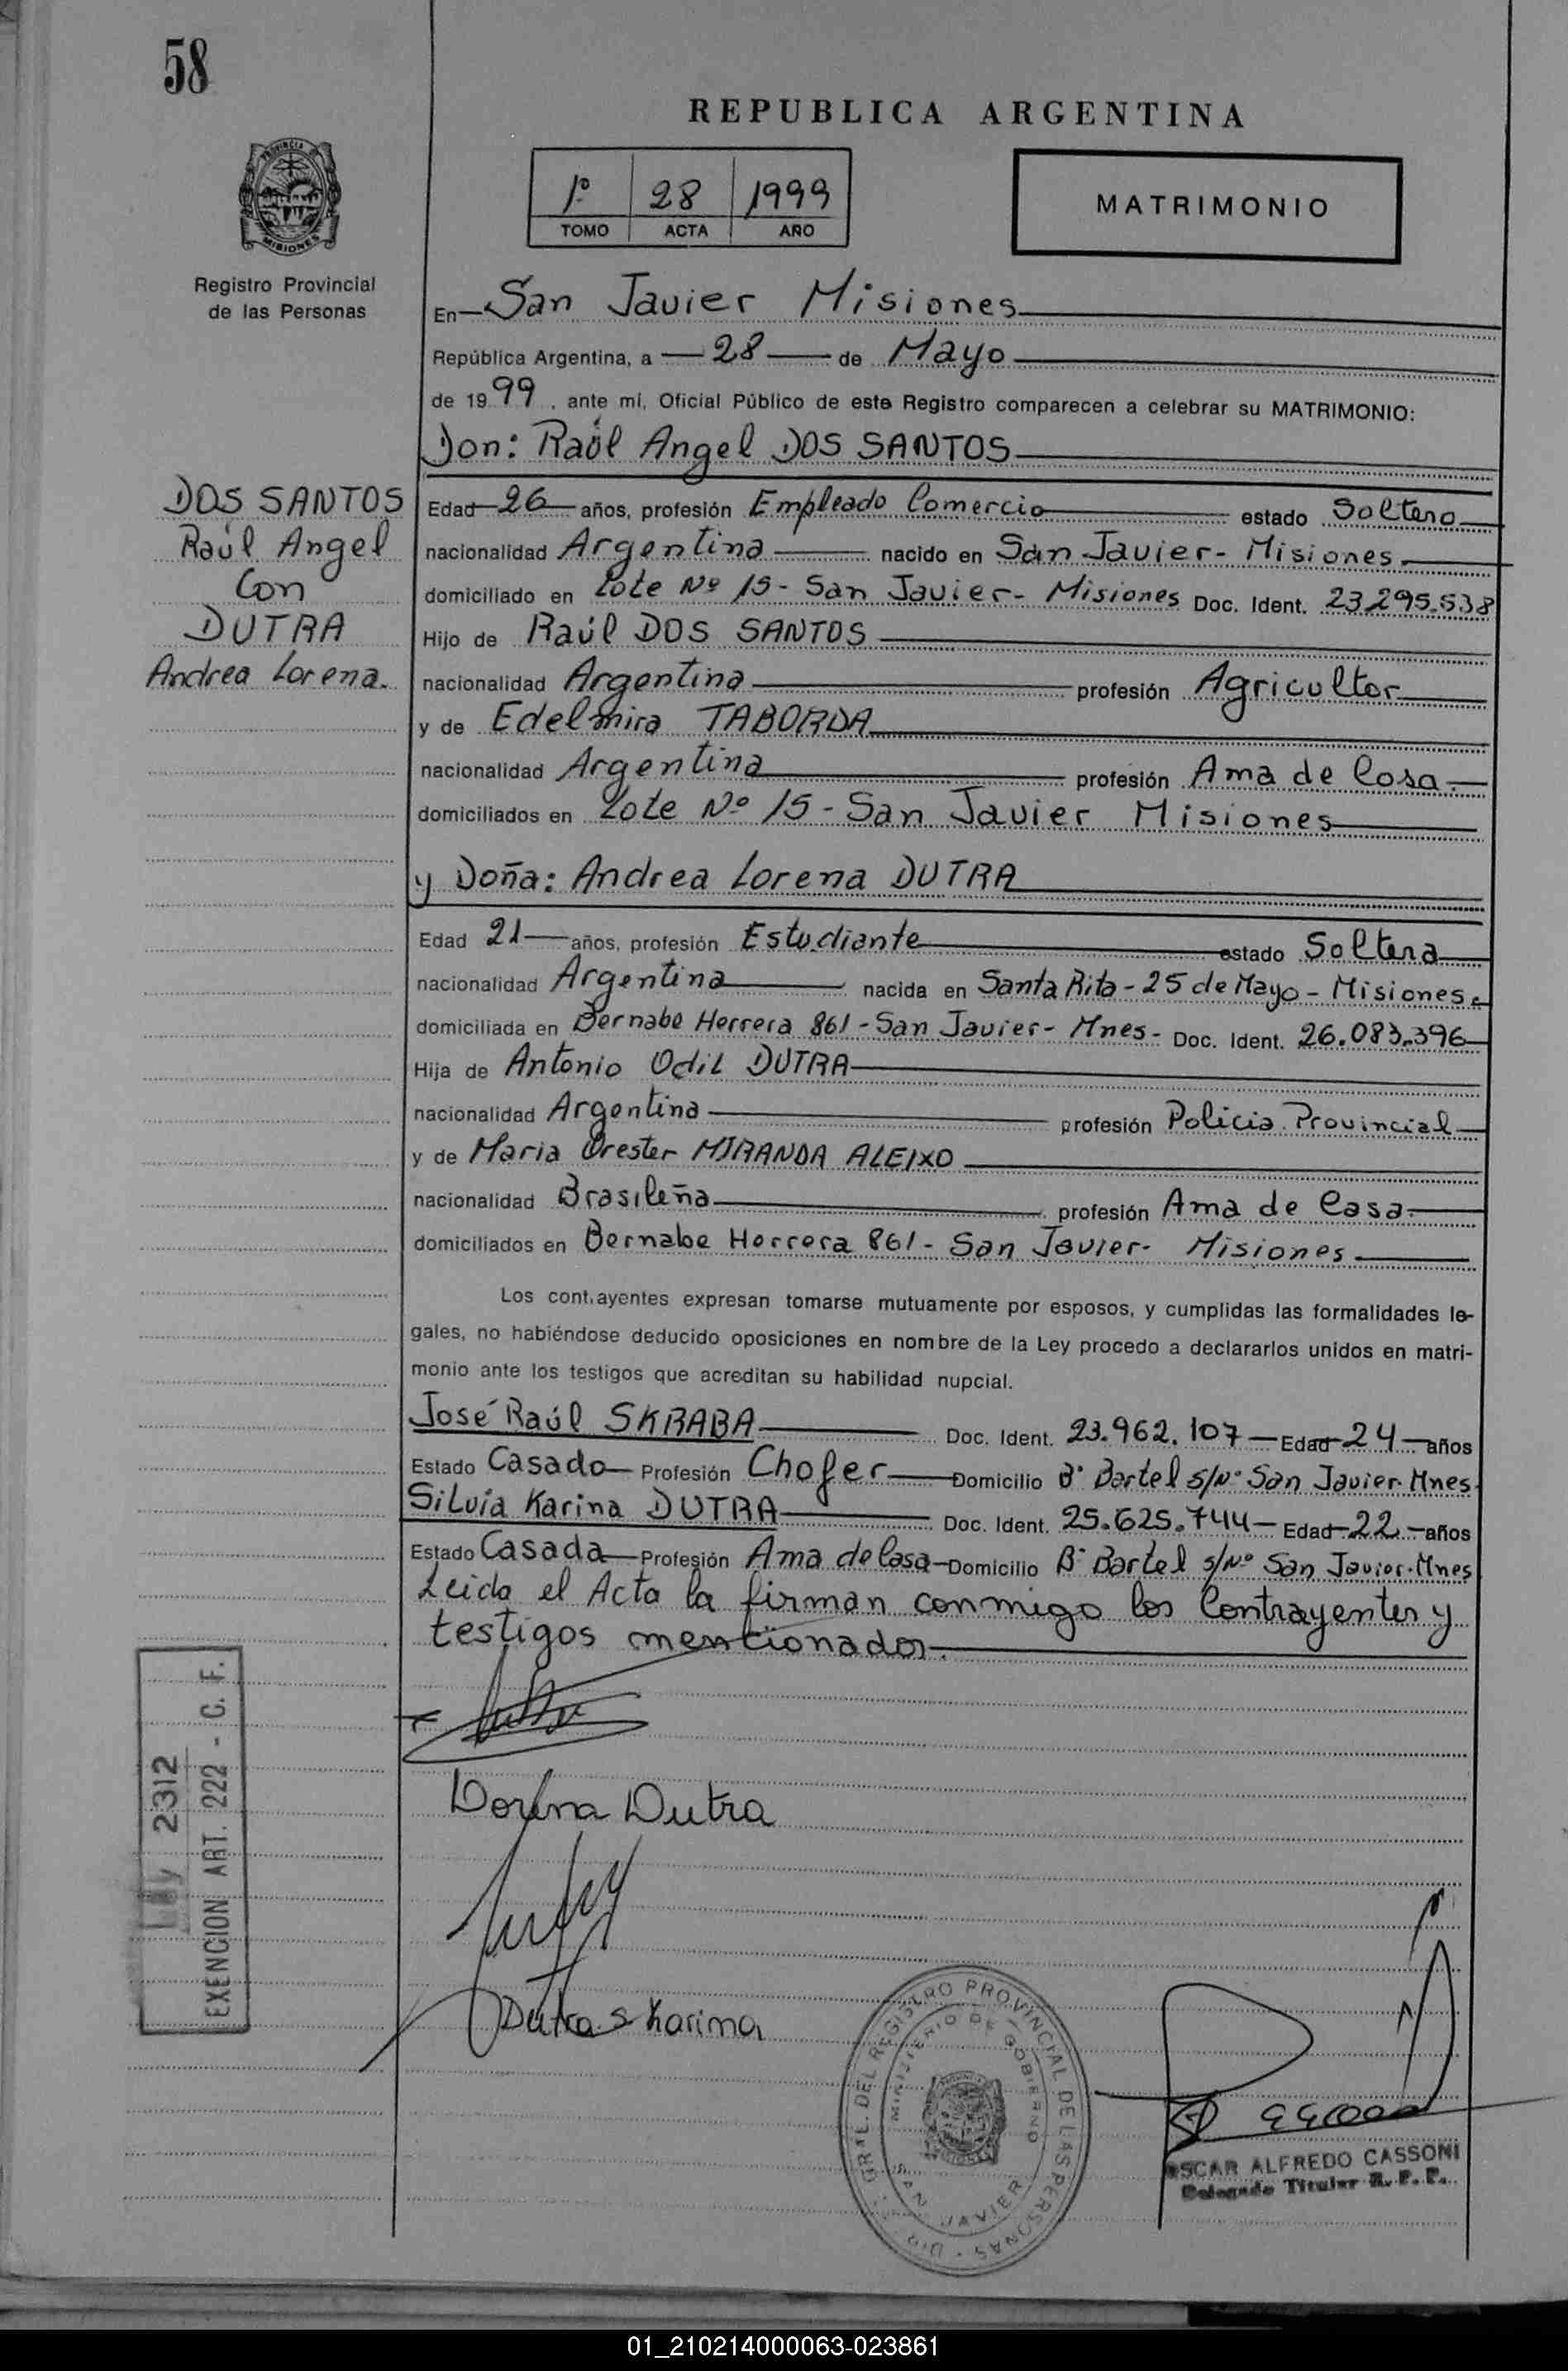 58
REPUBLICA ARGENTINA
PROVINCIA DE
MISIONES
1º 28 1999
TOMO ACTA AÑO
MATRIMONIO
Registro Provincial
de las Personas
En San Javier Misiones
República Argentina, a 28 de Mayo
de 1999, ante mí, Oficial Público de este Registro comparecen a celebrar su MATRIMONIO:
Don: Raúl Angel DOS SANTOS
DOS SANTOS
Raúl Angel
Con
DUTRA
Andrea Lorena.
Edad 26 años, profesión Empleado Comercio estado Soltero
nacionalidad Argentina nacido en San Javier - Misiones
domiciliado en Lote Nº 15 - San Javier - Misiones Doc. Ident. 23.295.538
Hijo de Raúl DOS SANTOS
nacionalidad Argentina profesión Agricultor
y de Edelmira TABORDA
nacionalidad Argentina profesión Ama de Casa
domiciliados en Lote Nº 15 - San Javier Misiones
y Doña: Andrea Lorena DUTRA
Edad 21 años, profesión Estudiante estado Soltera
nacionalidad Argentina nacida en Santa Rita - 25 de Mayo - Misiones
domiciliada en Bernabe Herrera 861 - San Javier - Mnes - Doc. Ident. 26.083.396
Hija de Antonio Odil DUTRA
nacionalidad Argentina profesión Policia Provincial
y de Maria Orester MIRANDA ALEIXO
nacionalidad Brasileña profesión Ama de Casa
domiciliados en Bernabe Herrera 861 - San Javier - Misiones
Los contrayentes expresan tomarse mutuamente por esposos, y cumplidas las formalidades le-
gales, no habiéndose deducido oposiciones en nombre de la Ley procedo a declararlos unidos en matri-
monio ante los testigos que acreditan su habilidad nupcial.
José Raúl SKRABA Doc. Ident. 23.962.107 Edad 24 años
Estado Casado Profesión Chofer Domicilio Bº Bartel S/Nº San Javier. Mnes
Silvia Karina DUTRA Doc. Ident. 25.625.744 Edad 22 años
Estado Casada Profesión Ama de Casa Domicilio Bº Bartel s/Nº San Javier. Mnes
Leida el Acta la firman conmigo los Contrayentes y
testigos mencionados.
Ley 2312
EXENCION ART. 222 - C. F.
Lorena Dutra
Dutra S Karina
DIR. GRAL. DEL REGISTRO PROVINCIAL DE LAS PERSONAS
MINISTERIO DE GOBIERNO
SAN JAVIER
OSCAR ALFREDO CASSONI
Delegado Titular R. P. P.
01_210214000063-023861